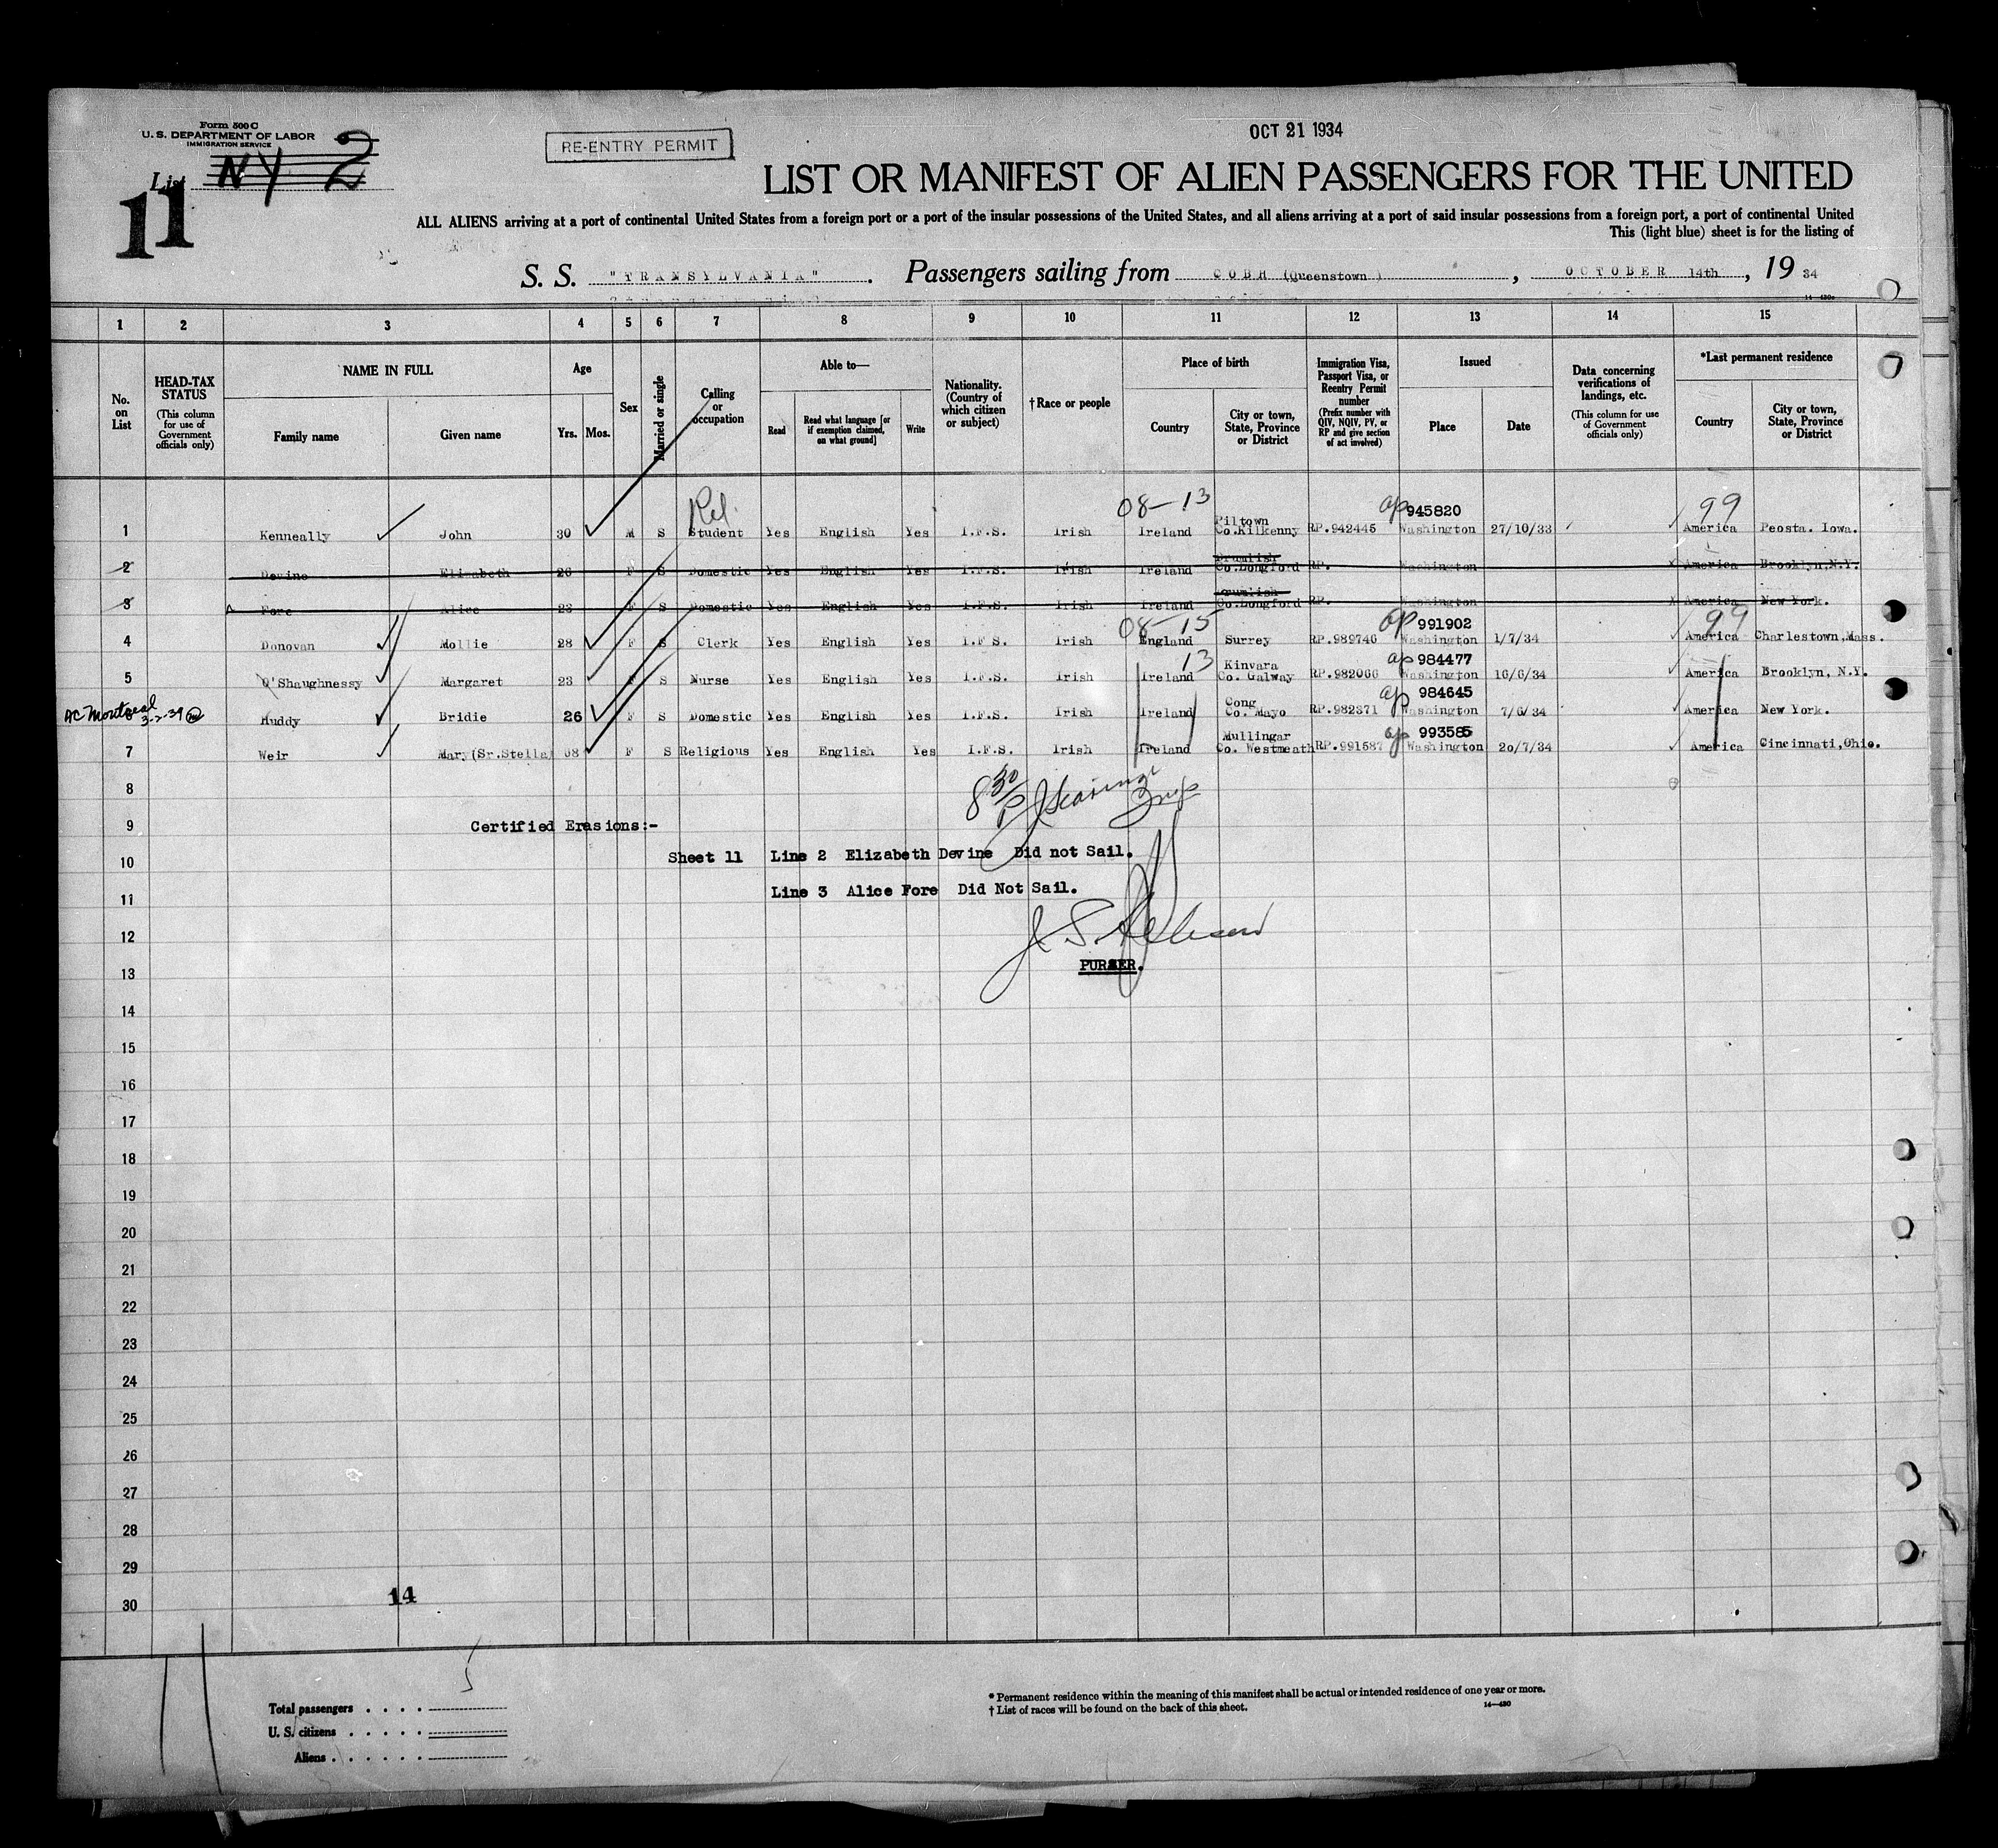 Form 500 C
U. S. DEPARTMENT OF LABOR
IMMIGRATION SERVICE
List NY 2
11
RE-ENTRY PERMIT
OCT 21 1934
LIST OR MANIFEST OF ALIEN PASSENGERS FOR THE UNITED
ALL ALIENS arriving at a port of continental United States from a foreign port or a port of the insular possessions of the United States, and all aliens arriving at a port of said insular possessions from a foreign port, a port of continental United
This (light blue) sheet is for the listing of
S. S. "TRANSYLVANIA". Passengers sailing from COBH (Queenstown), OCTOBER 14th, 19 34
1 2 3 4 5 6 7 8 9 10 11 12 13 14 15
No. on List
HEAD-TAX STATUS (This column for use of Government officials only)
NAME IN FULL
Family name Given name
Age
Yrs. Mos.
Sex
Married or single
Calling or occupation
Able to—
Read Read what language [or if exemption claimed, on what ground] Write
Nationality. (Country of which citizen or subject)
†Race or people
Place of birth
Country City or town, State, Province or District
Immigration Visa, Passport Visa, or Reentry Permit number (Prefix number with QIV, NQIV, PV, or RP and give section of act involved)
Issued
Place Date
Data concerning verifications of landings, etc. (This column for use of Government officials only)
*Last permanent residence
Country City or town, State, Province or District
Rel. 08-13 ap 945820 99
1 Kenneally John 30 M S Student Yes English Yes I.F.S. Irish Ireland Piltown Co.Kilkenny RP.942445 Washington 27/10/33 America Peosta. Iowa.
2 Devine Elizabeth 26 F S Domestic Yes English Yes I.F.S. Irish Ireland Drumlish Co.Longford RP. Washington America Brooklyn,N.Y.
3 Fore Alice 23 F S Domestic Yes English Yes I.F.S. Irish Ireland Drumlish Co.Longford RP. Washington America New York.
08-15 ap 991902 99
4 Donovan Mollie 28 F S Clerk Yes English Yes I.F.S. Irish England Surrey RP.989746 Washington 1/7/34 America Charlestown,Mass.
13 ap 984477
5 O'Shaughnessy Margaret 23 F S Nurse Yes English Yes I.F.S. Irish Ireland Kinvara Co. Galway RP.982066 Washington 16/6/34 America Brooklyn, N.Y.
ap 984645
AC Montreal 3-2-39
Huddy Bridie 26 F S Domestic Yes English Yes I.F.S. Irish Ireland Cong Co. Mayo RP.982371 Washington 7/6/34 America New York.
ap 993585
7 Weir Mary(Sr.Stella) 68 F S Religious Yes English Yes I.F.S. Irish Ireland Mullingar Co. Westmeath RP.991587 Washington 20/7/34 America Cincinnati,Ohio.
8
8 30/P
9 Certified Erasions:-
10 Sheet 11 Line 2 Elizabeth Devine Did not Sail.
11 Line 3 Alice Fore Did Not Sail.
12
PURSER.
13
14
15
16
17
18
19
20
21
22
23
24
25
26
27
28
29
14
30
5
Total passengers . . . .
U. S. citizens . . . . .
Aliens . . . . . .
* Permanent residence within the meaning of this manifest shall be actual or intended residence of one year or more.
† List of races will be found on the back of this sheet.
14—430